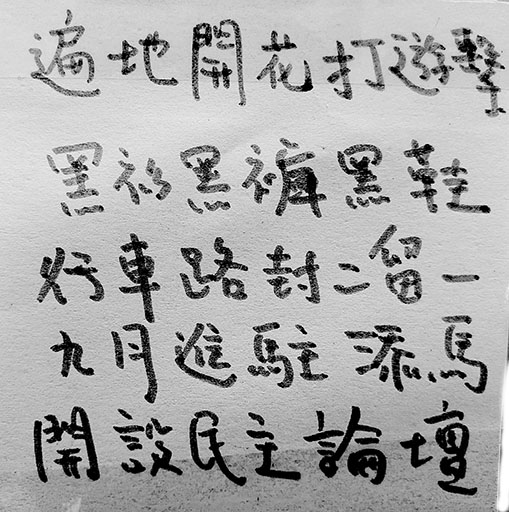 遍地開花打遊擊
黑衫黑褲黑鞋
行車路封二留一
九月進駐添馬
開設民主論壇